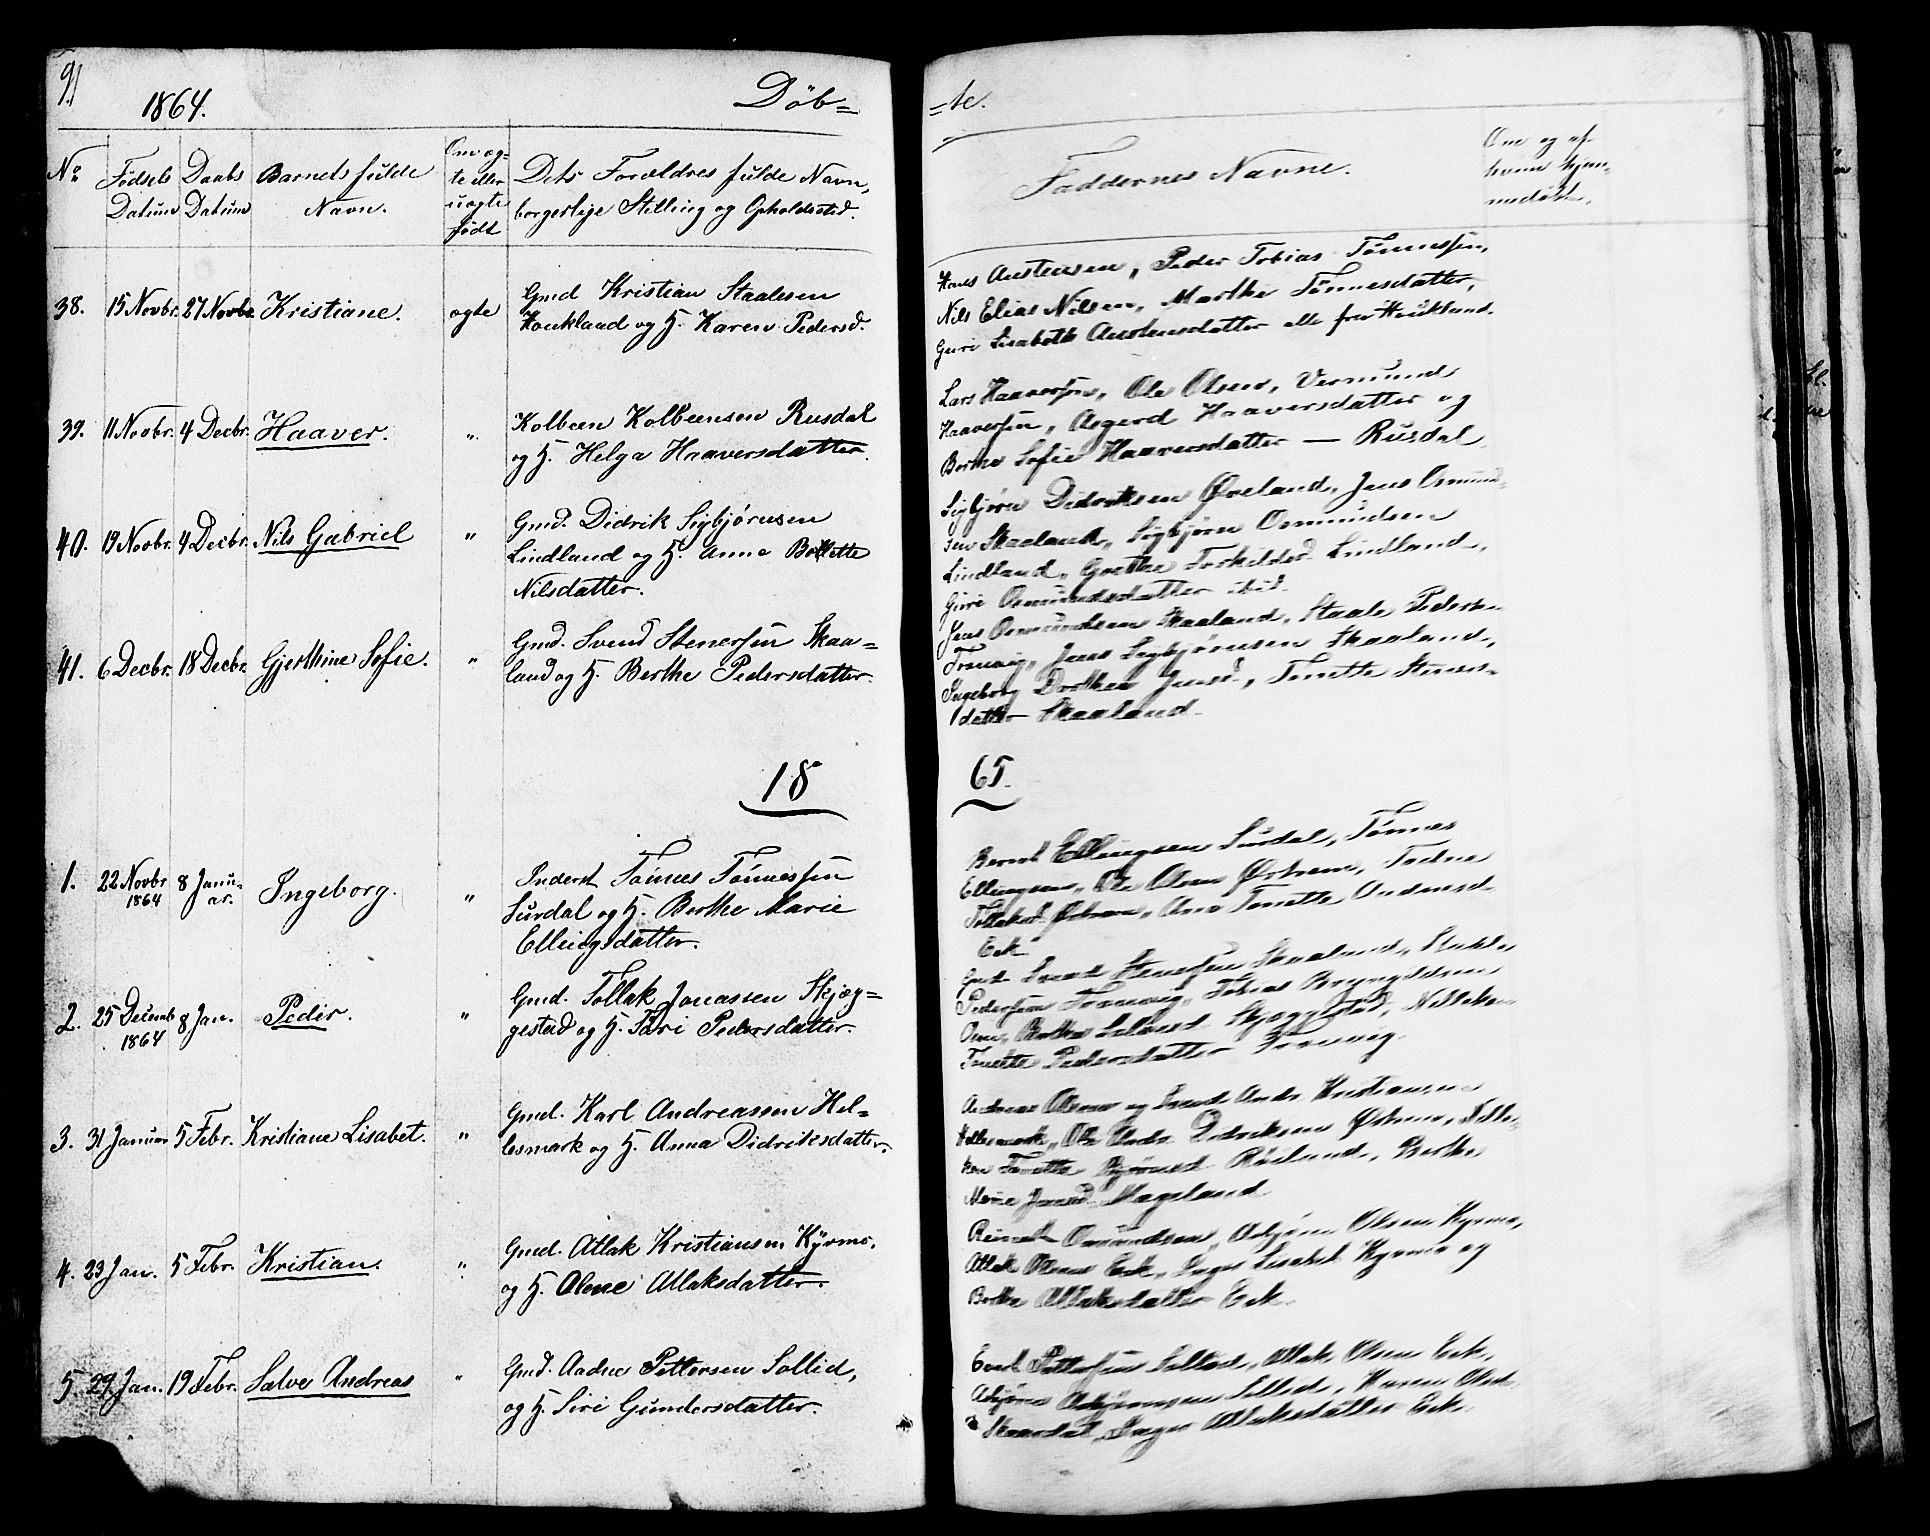 91
1864.
Døb=
=te.
No
Fødsels Datum
Daabs Datum
Barnets fulde Navn.
Om ægte eller uægte født
Dets Forældres fulde Navn, borgerlige Stilling og Opholdssted.
Faddernes Navne.
Om og af hvem hjemmedøbt.
38. 15 Novbr. 27 Novbr Kristiane. ægte
Gmd Kristian Staalesen
Houkland og H. Karen Pedersd.
Hans Austensen, Peder Tobias Tønnessen,
Nils Elias Nilsen, Marthe Tønnesdatter,
Guri Lisabeth Austensdatter alle fra Haukland.
39. 11 Novbr. 4 Decbr. Haaver. "
Kolbeen Kolbeensen Rusdal
og H. Helga Haaversdatter.
Lars Haaversen, Ole Olsen, Vermund
Haaversen, Asgerd Haaversdatter og
Berthe Sofie Haaversdatter — Rusdal
40. 19 Novbr. 4 Decbr. Nils Gabriel "
Gmd. Didrik Sigbjørnsen
Lindland og H. Anne Bollette
Nilsdatter.
Sigbjørn Didriksen Øveland, Jens Osmund-
sen Skaaland, Sigbjørn Osmundsen
Lindland, Grethe Torkildsd Lindland,
Giri Osmundsdatter ibid.
41. 6 Decbr. 18 Decbr. Gjerthine Sofie. "
Gmd. Svend Stenersen Skaa=
land og H. Berthe Pedersdatter.
Jens Osmundsen Skaaland, Staale Peders-
Tronvig, Jens Sigbjørnsen Skaaland,
Ingeborg Dorthea Jensd., Tonette Steners-
datter Skaaland.
18 65.
1. 22 Novbr 1864 8 Janu-ar. Ingeborg. "
Inderst Tønnes Tønnessen
Surdal og H. Berthe Marie
Ellingsdatter.
Berent Ellingsen Surdal, Tønnes
Ellingsen, Ole Olsen Østrem, Tadne
Tollaksd. Østrem, Ane Tonette Andersd
Eek
2. 25 Decemb 1864 8 Jan. Peder. "
Gmd. Tollak Jonassen Skjæg=
gestad og H. Tori Pedersdatter.
Gmd Svend Stenersen Skaaland, Staale
Pedersen Tronvig, Tobias
Berthe Skjæggestad,
Tonette Pedersdatter Tronvig.
3. 31 Januar 5 Febr. Kristiane Lisabet. "
Gmd. Karl Andreassen Hel-
lesmark og H. Anna Didriksdatter.
Andreas Olsen og Svend Andr. Kristiansen
Hellesmark, Ole Andr. Didriksen Østrem, Sille-
ken Tonette Bjørnsd. Røiland, Berthe
Marie Jensd. Mageland
4. 23 Jan. 5 Febr. Kristian. "
Gmd. Atlak Kristiansen Kyrmo,
og H. Olene Atlaksdatter.
Reinert Omundsen, Asbjørn Olsen Kyrmo,
Atlak Olsen Eek, Inger Lisabet Kyrmo og
Berthe Atlaksdatter Eek.
5. 29 Jan. 19 Febr. Salve Andreas "
Gmd. Aadne Pettersen Sollid,
og H. Siri Gundersdatter.
Pettersen Sollid, Atlak Olsen Eek,
Asbjørn Asbjørnsen Sollid, Karen Olsd.
Skaardal, Inger Atlaksdatter Eek.